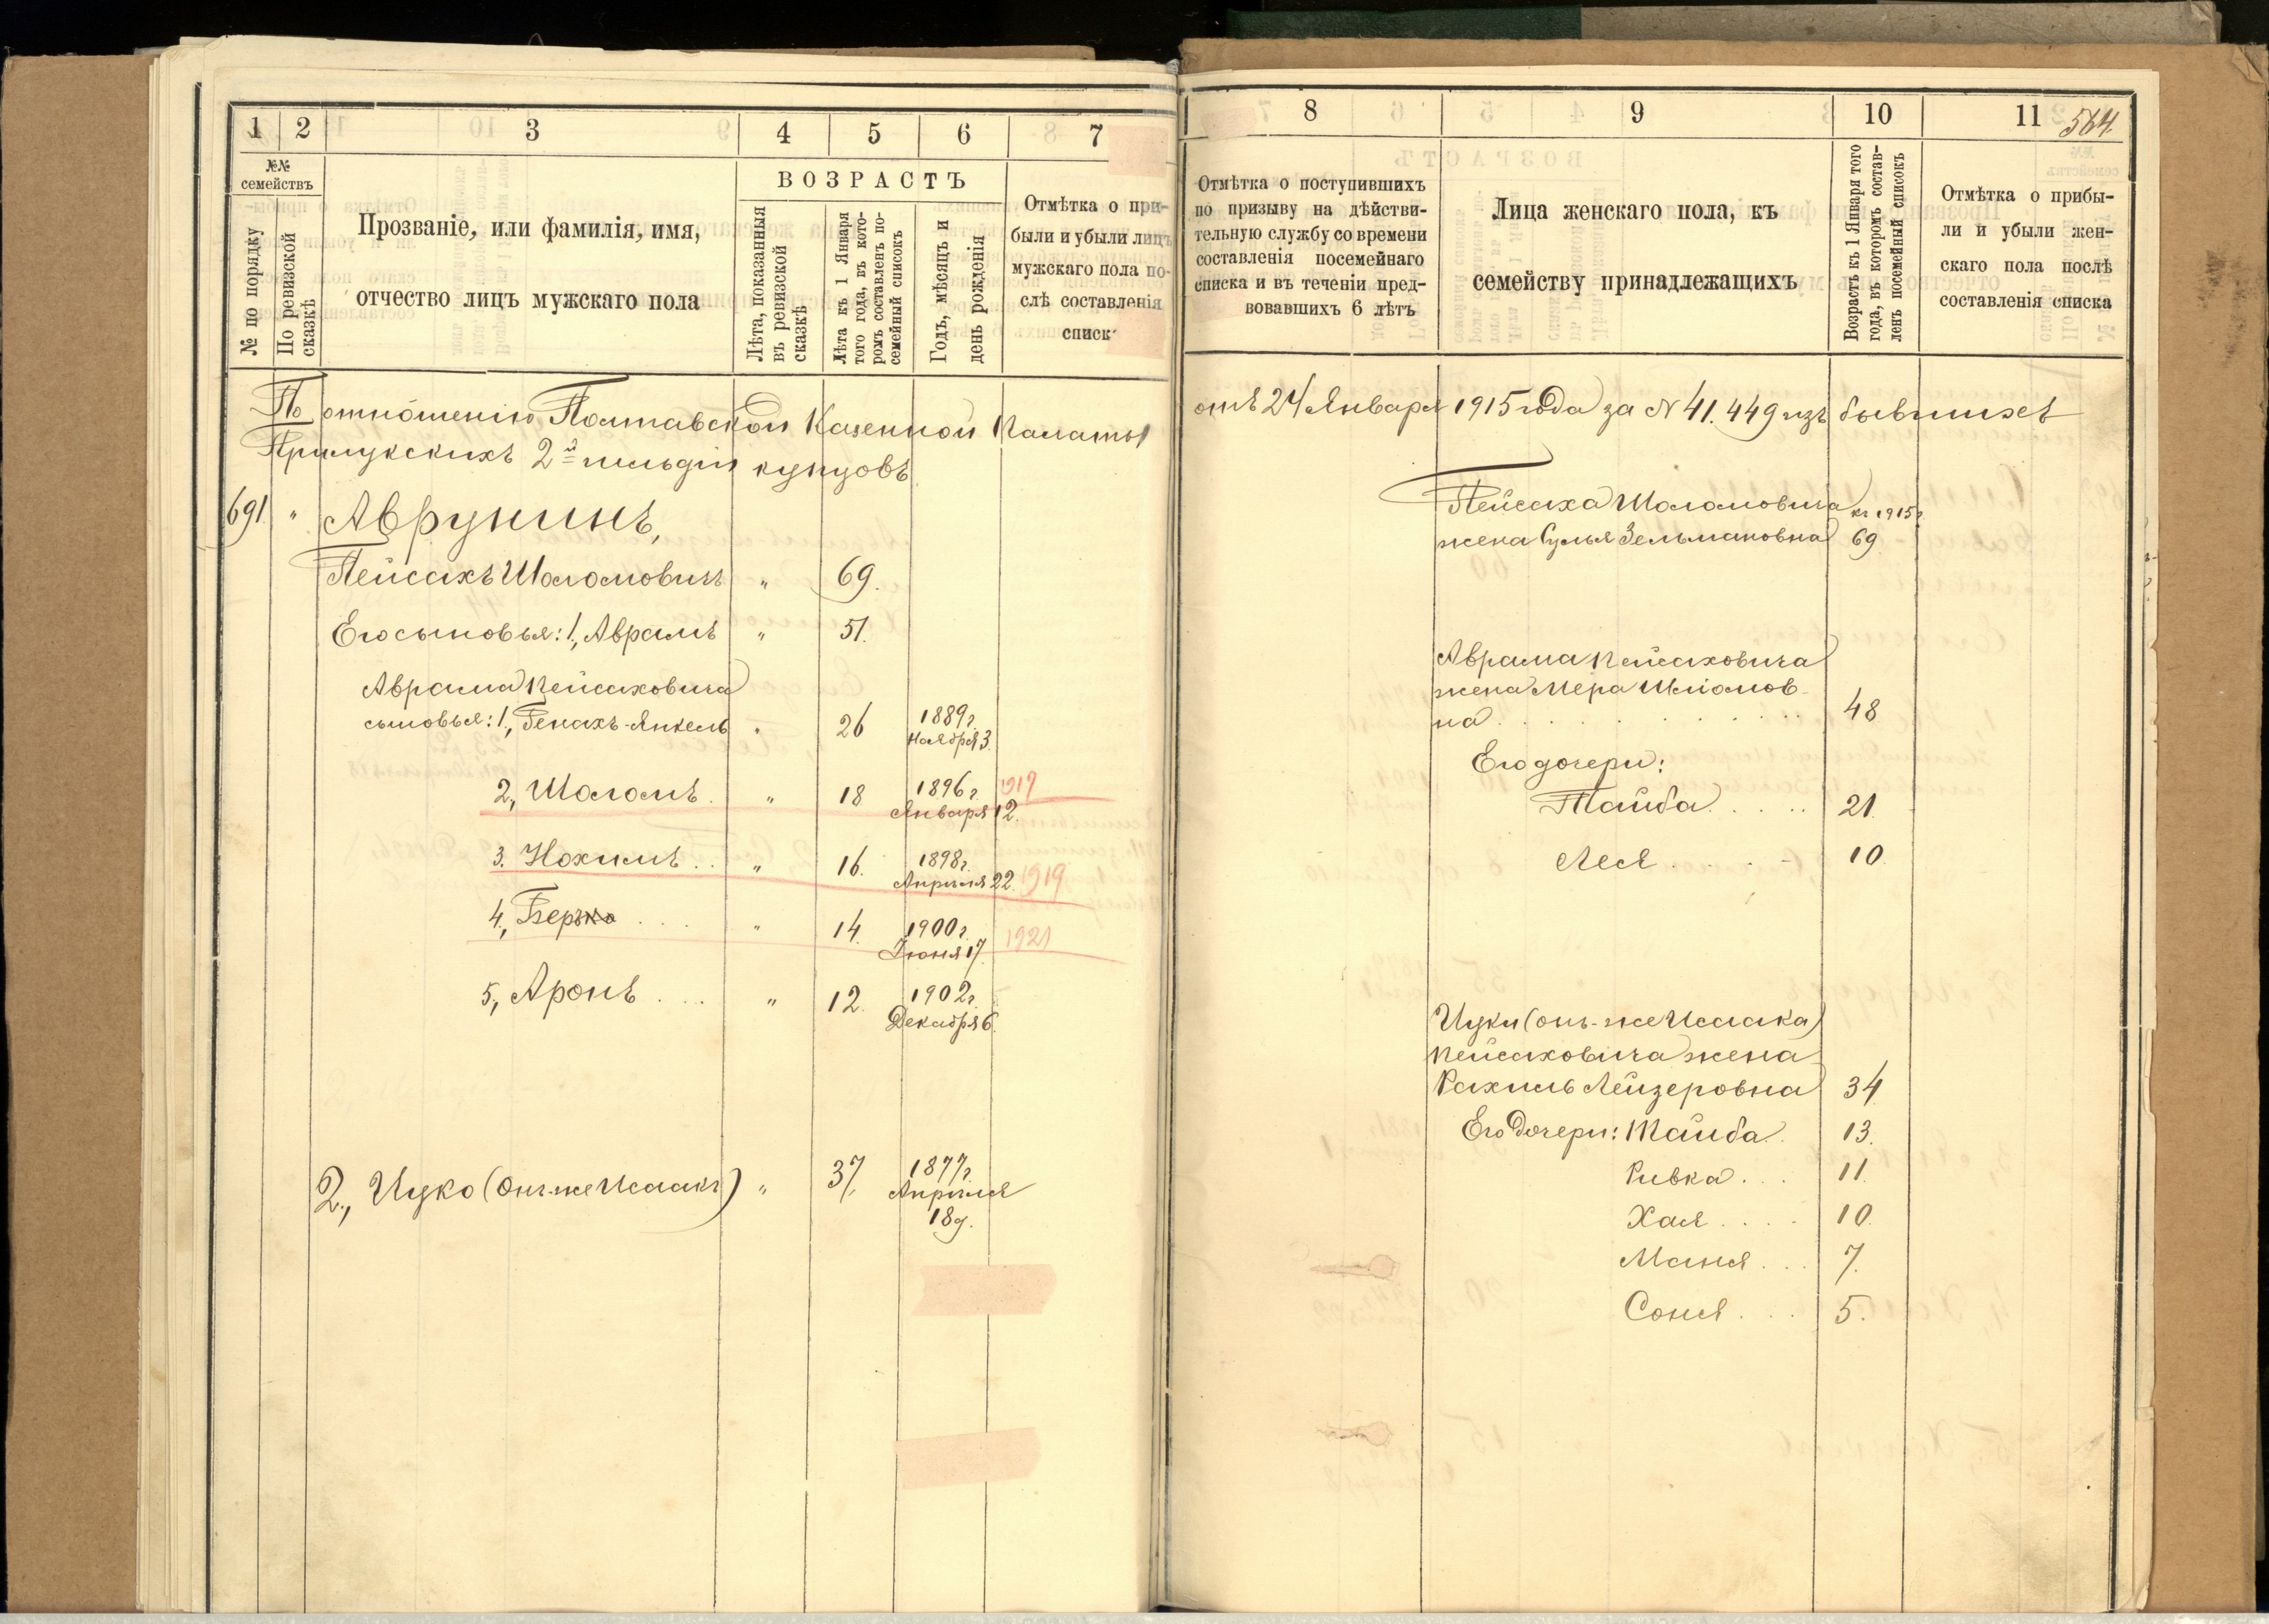 1 2 3 4 5 6 7
№№ семействъ
№ по порядку
По ревизской сказкѣ
Прозваніе, или фамилія, имя,
отчество лицъ мужскаго пола
ВОЗРАСТЪ
Лѣта, показанныя
въ ревизской
сказкѣ
Лѣта къ 1 Января
того года, въ кото-
ромъ составленъ по-
семейный списокъ
Годъ, мѣсяцъ и
день рожденія
Отмѣтка о при-
были и убыли лицъ
мужскаго пола по-
слѣ составленія
списк
По отношенію Полтавской Казенной Палаты
Прилукскихъ 2й гильдіи купцовъ
691 " Аврунинъ,
Пейсахъ Шоломовичъ " 69.
Его сыновья: 1, Аврамъ " 51.
Аврама Пейсаховича
сыновья: 1, Генахъ-Янкель " 26 1889 г.
Ноября 3.
2, Шоломъ . " 18 1896 г. 1917
Января 12.
3. Нохимъ . . " 16. 1898 г.
Апрѣля 22. 1919
4, Берко . . . " 14. 1900 г.
Іюня 17. 1921
5, Аронъ . . . " 12. 1902 г.
Декабря 6.
2, Ицко (онъ-же Исаакъ) " 37. 1877 г.
Апрѣля
18 д.
8 9 10 11 564.
Отмѣтка о поступившихъ
по призыву на дѣйстви-
тельную службу со времени
составленія посемейнаго
списка и въ теченіи пред-
вовавшихъ 6 лѣтъ
Лица женскаго пола, къ
семейству принадлежащихъ
Возрастъ къ 1 Января того
года, въ которомъ состав-
ленъ посемейный списокъ
Отмѣтка о прибы-
ли и убыли жен-
скаго пола послѣ
составленія списка
отъ 24 Января 1915 года за № 41.449 изъ бывшихъ
Пейсаха Шоломовича къ 1915 г.
жена Сулья Зельмановна 69
Аврама Пейсаховича
жена Мера Шліомов-
на . . . . . . . . 48
Его дочери:
Тайба . . . . 21.
Леся . . . . 10.
Ицки (онъ-же Исаака)
Пейсаховича жена
Рахиль Лейзеровна 34
Его дочери: Тайба . 13.
Ривка . . . 11.
Хая . . . . 10.
Маня . . . 7.
Соня . . . 5.